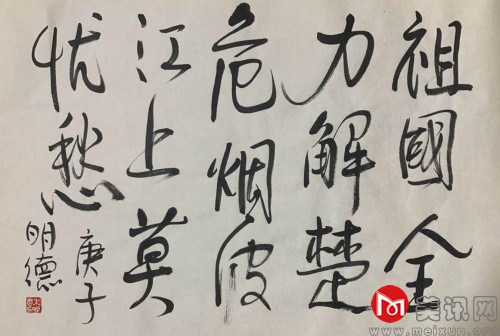 祖國全
力解楚
危烟波
江上莫
忧愁
庚子
明德
美讯网
www.meixun.cn